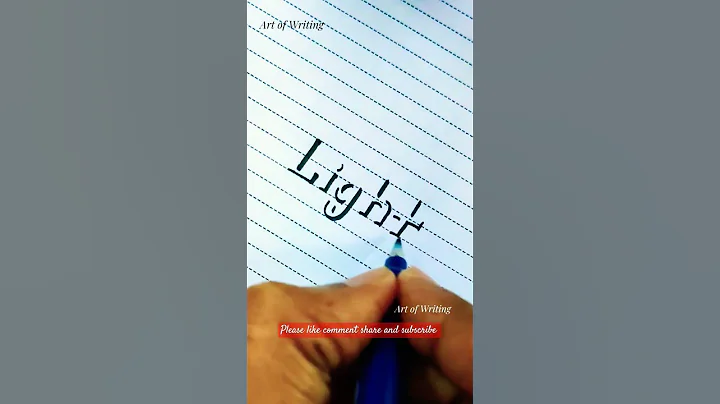 Art of Writing
Light
Art of Writing
Please like comment share and subscribe